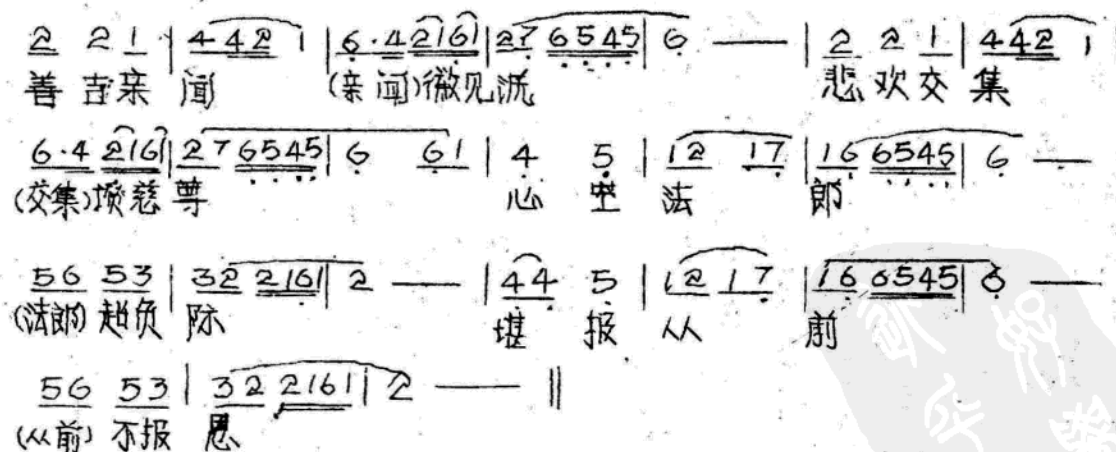 2 2 1 | 4 4 2 1 | 6·4 2 1 6 1 | 2 7 6 5 4 5 | 6 — | 2 2 1 | 4 4 2 1
善 吉亲 闻 (亲闻)微见洗 悲 欢交 集
6·4 2 1 6 1 | 2 7 6 5 4 5 | 6 6 1 | 4 5 | 1 2 1 7 | 1 6 6 5 4 5 | 6 —
(交集)愤慈 尊 心 空 法 郎
5 6 5 3 | 3 2 2 1 6 1 | 2 — | 4 4 5 | 1 2 1 7 | 1 6 6 5 4 5 | 6 —
(法郎) 趙负 际 堪 报 从 前
5 6 5 3 | 3 2 2 1 6 1 | 2 — ‖
(从前) 不报 恩